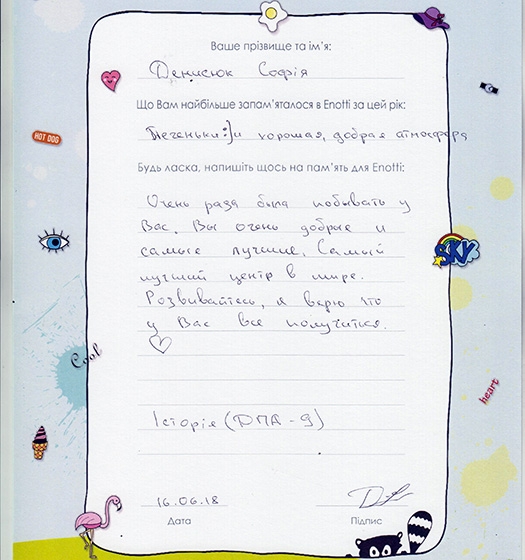 Ваше прізвище та ім'я:
Денисюк Софія
Що Вам найбільше запам'яталося в Enotti за цей рік:
Печеньки:) и хорошая, добрая атмосфера
Будь ласка, напишіть щось на пам'ять для Enotti:
Очень рада была побывать у
Вас. Вы очень добрые и
самые лучшие. Самый
лучший центр в мире.
Розвивайтесь, я верю что
у Вас все получиться.
Історія (ДПА - 9)
16.06.18
Дата
Підпис
HOT DOG
SKY
Cool
heart